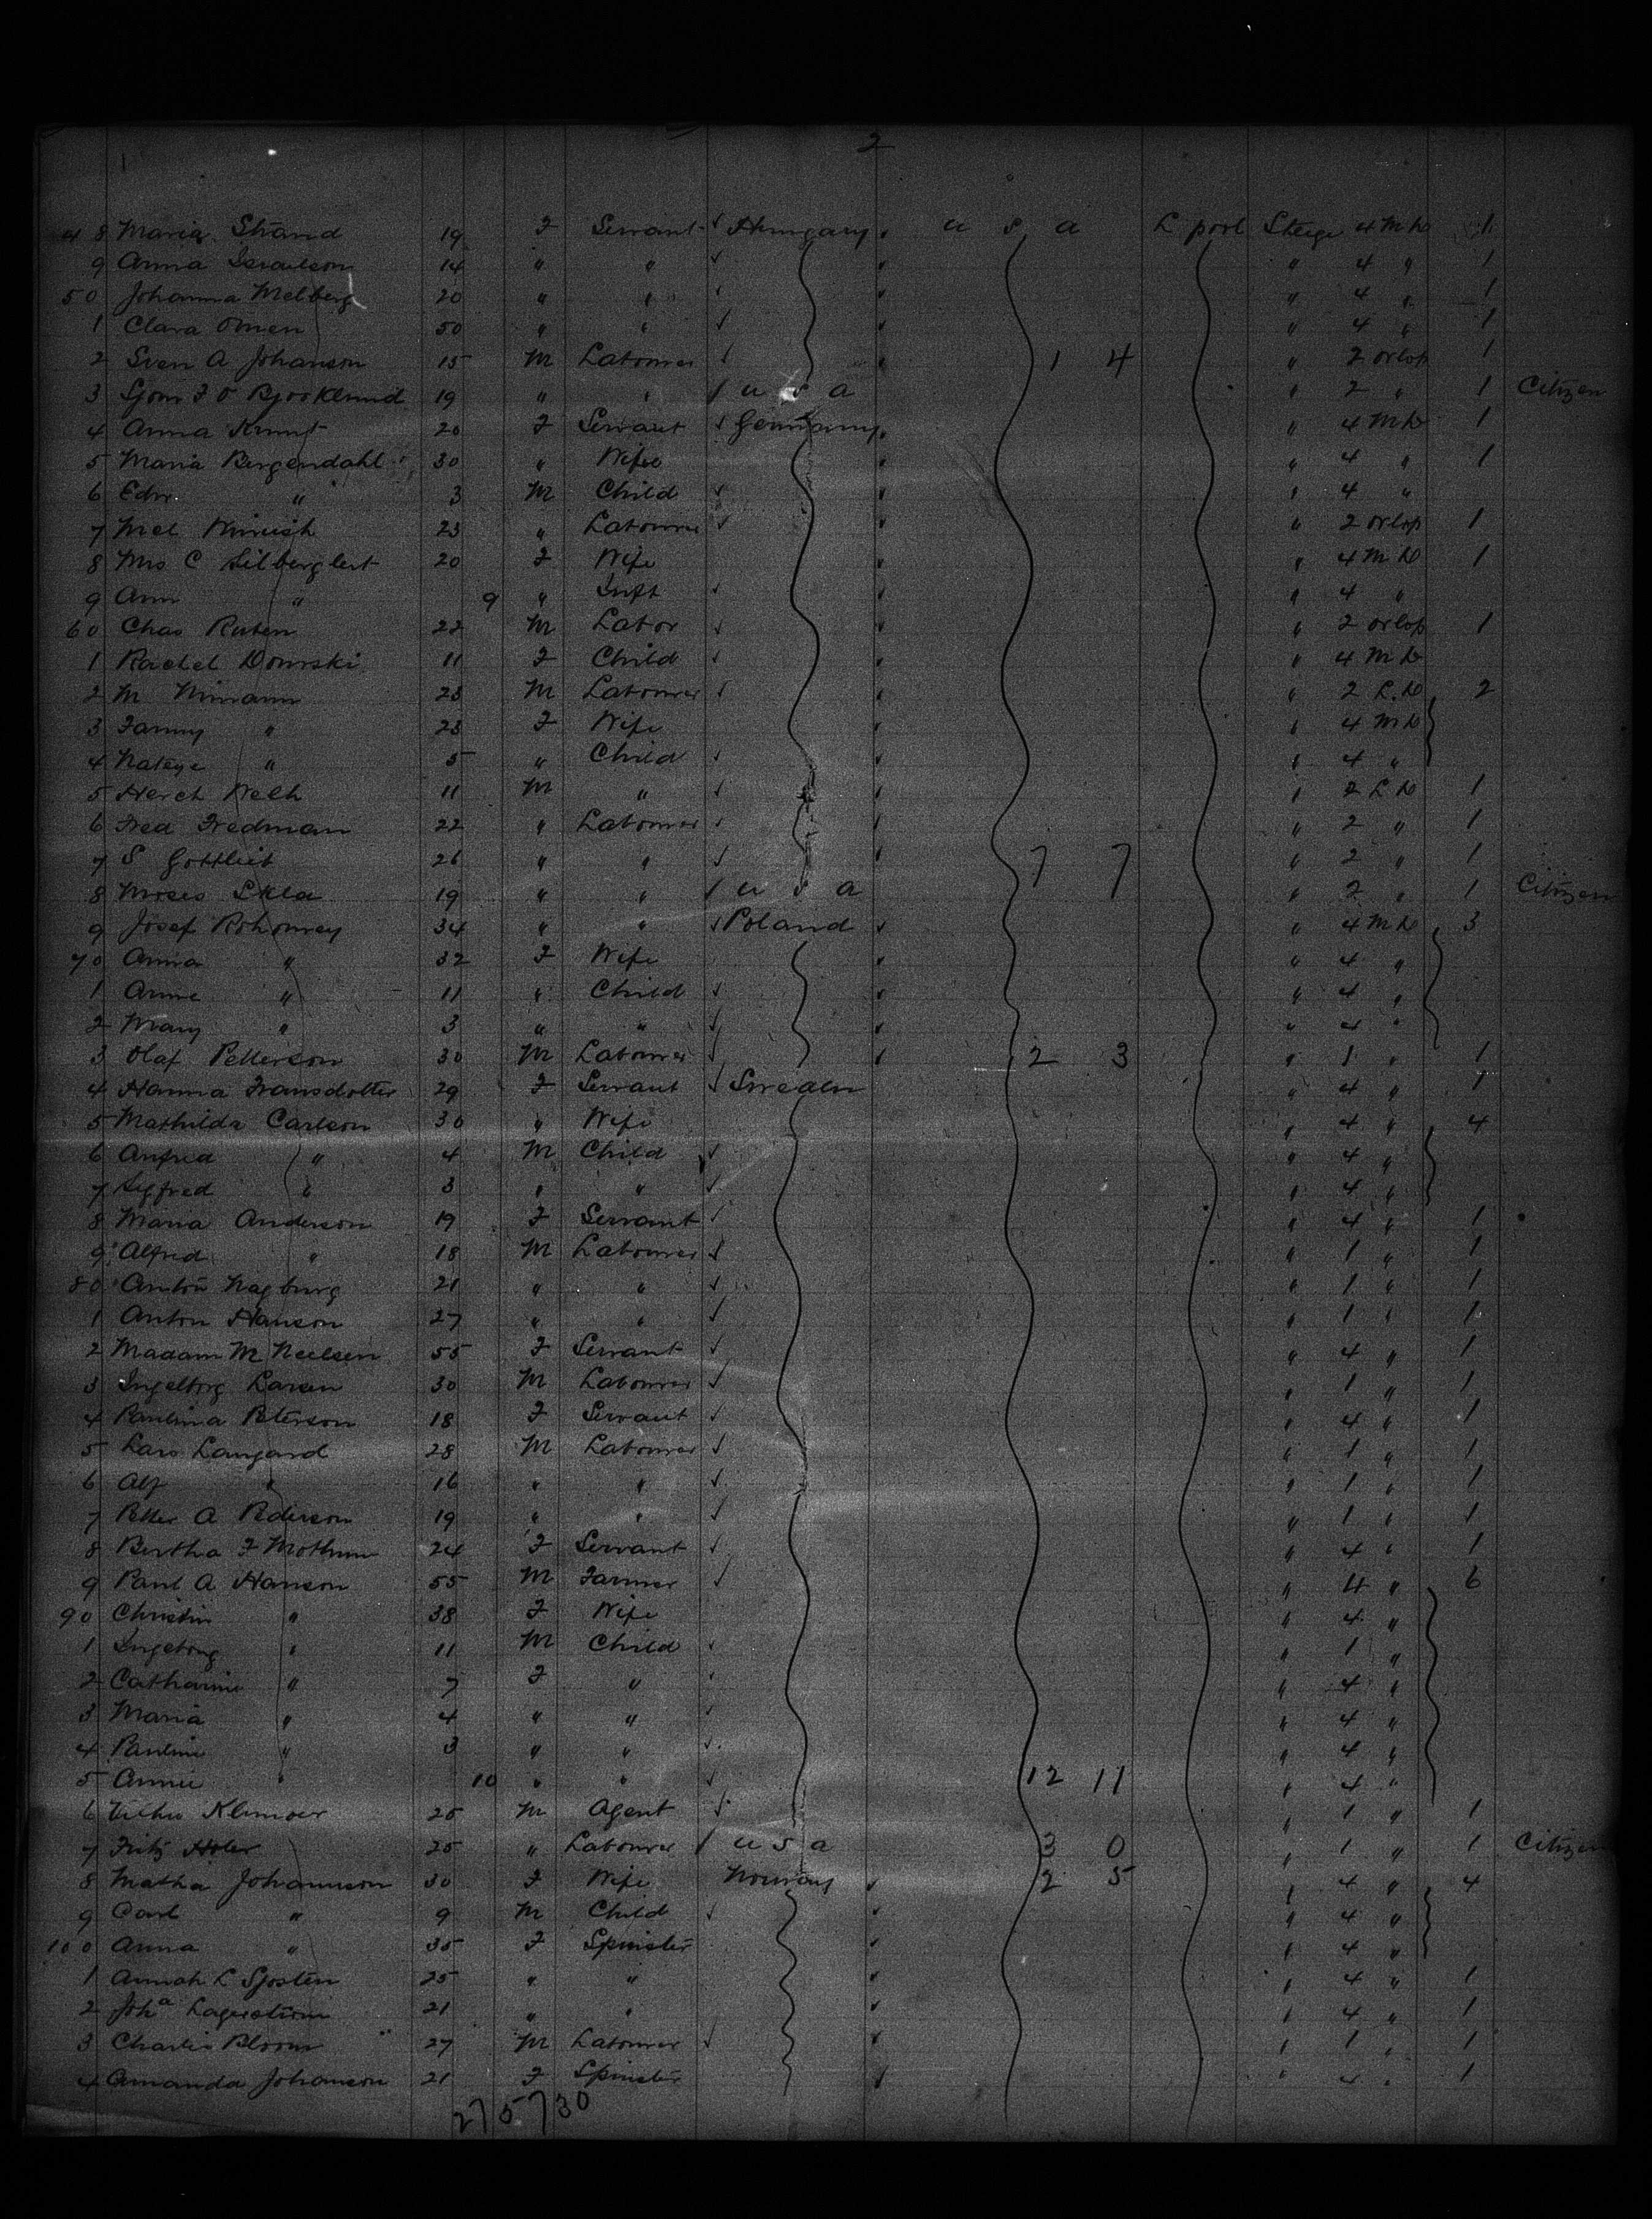 2
48 Maria Strand 19 F Servant ✓ Hungary u s a L pool Steege 4 M D 1
9 Anna Israelson 14 " " ✓ " 4 " 1
50 Johanna Melberg 20 " " ✓ " 4 " 1
1 Clara Omen 50 " " ✓ " 4 " 1
2 Sven A Johanson 15 M Labourer ✓ 1 4 " 2 orlop 1
3 19 " " / u s a " 2 " 1 Citizen
4 Anna 20 F Servant ✓ Germany " 4 M D 1
5 Maria Bergendahl 30 " Wife " 4 " 1
6 Edw. " 3 M Child ✓ " 4 "
7 23 " Labourer ✓ " 2 orlop 1
8 Mrs C 20 F Wife " 4 M D 1
9 Ann " 9 " Inft ✓ " 4 "
60 Chas Ruben 22 M Labor ✓ " 2 orlop 1
1 Rachel 11 F Child ✓ " 4 M D
2 M 23 M Labourer ✓ " 2 L.D 2
3 Fanny " 23 F Wife " 4 M D
4 " 5 " Child ✓ " 4 "
5 11 M " ✓ " 2 L D 1
6 Fred Fredman 22 " Labourer ✓ " 2 " 1
7 S Gottlieb 26 " " ✓ 7 7 " 2 " 1
8 Moses 19 " " / u s a " 2 " 1 Citizen
9 Josef 34 " " ✓ Poland " 4 M D 3
70 Anna " 32 F Wife " 4 "
1 Anne " 11 " Child ✓ " 4 "
2 Mary " 3 " " ✓ " 4 "
3 Olaf Petterson 30 M Labourer ✓ 2 3 " 1 " 1
4 Hanna Fransdotter 29 F Servant ✓ Sweden " 4 " 1
5 Mathilda Carlson 30 " Wife " 4 " 4
6 " 4 M Child ✓ " 4 "
7 " 3 " " ✓ " 4 "
8 Maria Anderson 19 F Servant ✓ " 4 " 1
9 Alfred " 18 M Labourer ✓ " 1 " 1
80 Anton Nagburg 21 " " ✓ " 1 " 1
1 Anton Hanson 27 " " ✓ " 1 " 1
2 Madam M Neelsen 55 F Servant ✓ " 4 " 1
3 Ingeborg Larsen 30 M Labourer ✓ " 1 " 1
4 Paulina Peterson 18 F Servant ✓ " 4 " 1
5 Lars Langard 28 M Labourer ✓ " 1 " 1
6 Alf " 16 " " ✓ " 1 " 1
7 Petter A Pederson 19 " " ✓ " 1 " 1
8 Bertha F 24 F Servant ✓ " 4 " 1
9 Paul A Hanson 55 M Farmer ✓ " 4 " 6
90 Christin " 38 F Wife " 4 "
1 Ingeborg " 11 M Child ✓ " 1 "
2 Catharine " 7 F " ✓ " 4 "
3 Maria " 4 " " ✓ " 4 "
4 Pauline " 3 " " ✓ " 4 "
5 Annie " 10 " " ✓ 12 11 " 4 "
6 25 M Agent ✓ " 1 " 1
7 Fritz 25 " Labourer / u s a 3 0 " 1 " 1 Citizen
8 Matha Johannson 30 F Wife Norway 2 5 " 4 " 4
9 Carl " 9 M Child ✓ " 4 "
100 Anna " 35 F Spinster " 4 "
1 Annah L Sjosten 25 " " " 4 " 1
2 Joha Lagerstrom 21 " " " 4 " 1
3 Charlie Bloom 27 M Labourer ✓ " 1 " 1
4 Amanda Johanson 21 F Spinster " 4 " 1
27 5 7 30